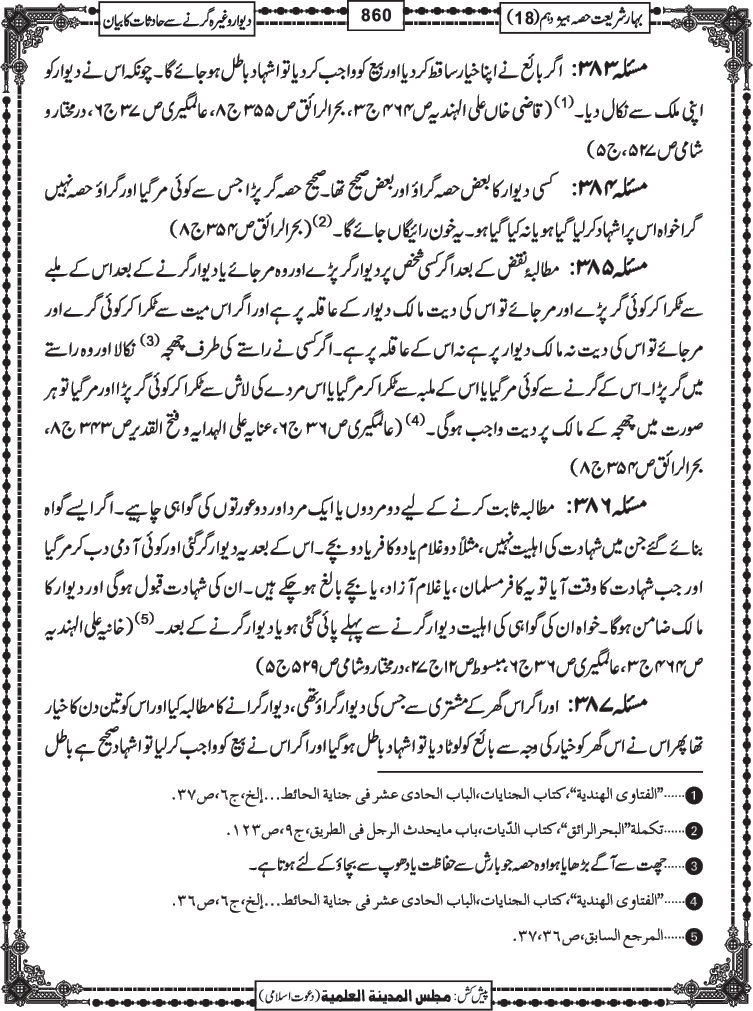 بہارِ شریعت حصہ ہیژدہم (18)
860
دیوار وغیرہ گرنے سے حادثات کا بیان
مسئلہ ۳۸۳: اگر بائع نے اپنا خیار ساقط کر دیا اور بیع کو واجب کر دیا تو اشہاد باطل ہو جائے گا۔ چونکہ اس نے دیوار کو
اپنی ملک سے نکال دیا۔(1) (قاضی خاں علی الہندیہ ص ۴۶۴ ج ۳، بحر الرائق ص ۳۵۵ ج ۸، عالمگیری ص ۳۷ ج ۶، درمختار و
شامی ص ۵۲۷، ج ۵)
مسئلہ ۳۸۴: کسی دیوار کا بعض حصہ گراؤ اور بعض صحیح تھا۔ صحیح حصہ گر پڑا جس سے کوئی مر گیا اور گراؤ حصہ نہیں
گرا خواہ اس پر اشہاد کر لیا گیا ہو یا نہ کیا گیا ہو۔ یہ خون رائیگاں جائے گا۔(2) (بحر الرائق ص ۳۵۴ ج ۸)
مسئلہ ۳۸۵: مطالبۂ نقض کے بعد اگر کسی شخص پر دیوار گر پڑے اور وہ مر جائے یا دیوار گرنے کے بعد اس کے ملبے
سے ٹکرا کر کوئی گر پڑے اور مر جائے تو اس کی دیت مالک دیوار کے عاقلہ پر ہے اور اگر اس میت سے ٹکرا کر کوئی گرے اور
مر جائے تو اس کی دیت نہ مالک دیوار پر ہے نہ اس کے عاقلہ پر ہے۔ اگر کسی نے راستے کی طرف چھجہ (3) نکالا اور وہ راستے
میں گر پڑا۔ اس کے گرنے سے کوئی مر گیا یا اس کے ملبہ سے ٹکرا کر مر گیا یا اس مردے کی لاش سے ٹکرا کر کوئی گر پڑا اور مر گیا تو ہر
صورت میں چھجہ کے مالک پر دیت واجب ہوگی۔(4) (عالمگیری ص ۳۶ ج ۶، عنایہ علی الہدایہ و فتح القدیر ص ۳۴۳ ج ۸،
بحر الرائق ص ۳۵۴ ج ۸)
مسئلہ ۳۸۶: مطالبہ ثابت کرنے کے لیے دو مردوں یا ایک مرد اور دو عورتوں کی گواہی چاہیے۔ اگر ایسے گواہ
بنائے گئے جن میں شہادت کی اہلیت نہیں، مثلاً دو غلام یا دو کافر یا دو بچے۔ اس کے بعد یہ دیوار گر گئی اور کوئی آدمی دب کر مر گیا
اور جب شہادت کا وقت آیا تو یہ کافر مسلمان، یا غلام آزاد، یا بچے بالغ ہو چکے ہیں۔ ان کی شہادت قبول ہوگی اور دیوار کا
مالک ضامن ہوگا۔ خواہ ان کی گواہی کی اہلیت دیوار گرنے سے پہلے پائی گئی ہو یا دیوار گرنے کے بعد۔(5) (خانیہ علی الہندیہ
ص ۴۶۴ ج ۳، عالمگیری ص ۳۶ ج ۶، مبسوط ص ۱۲ ج ۲۷، درمختار و شامی ص ۵۲۹ ج ۵)
مسئلہ ۳۸۷: اور اگر اس گھر کے مشتری سے جس کی دیوار گراؤ تھی، دیوار گرانے کا مطالبہ کیا اور اس کو تین دن کا خیار
تھا پھر اس نے اس گھر کو خیار کی وجہ سے بائع کو لوٹا دیا تو اشہاد باطل ہو گیا اور اگر اس نے بیع کو واجب کر لیا تو اشہاد صحیح ہے باطل
1......"الفتاوی الهندیة"، کتاب الجنایات، الباب الحادی عشر فی جنایة الحائط...إلخ، ج٦، ص٣٧.
2......تکملة "البحر الرائق"، کتاب الدّیات، باب مایحدث الرجل فی الطریق، ج٩، ص١٢٣.
3......چھت سے آگے بڑھایا ہوا وہ حصہ جو بارش سے حفاظت یا دھوپ سے بچاؤ کے لئے ہوتا ہے۔
4......"الفتاوی الهندیة"، کتاب الجنایات، الباب الحادی عشر فی جنایة الحائط...إلخ، ج٦، ص٣٦.
5......المرجع السابق، ص٣٦، ٣٧.
پیش کش: مجلس المدینة العلمیة (دعوتِ اسلامی)